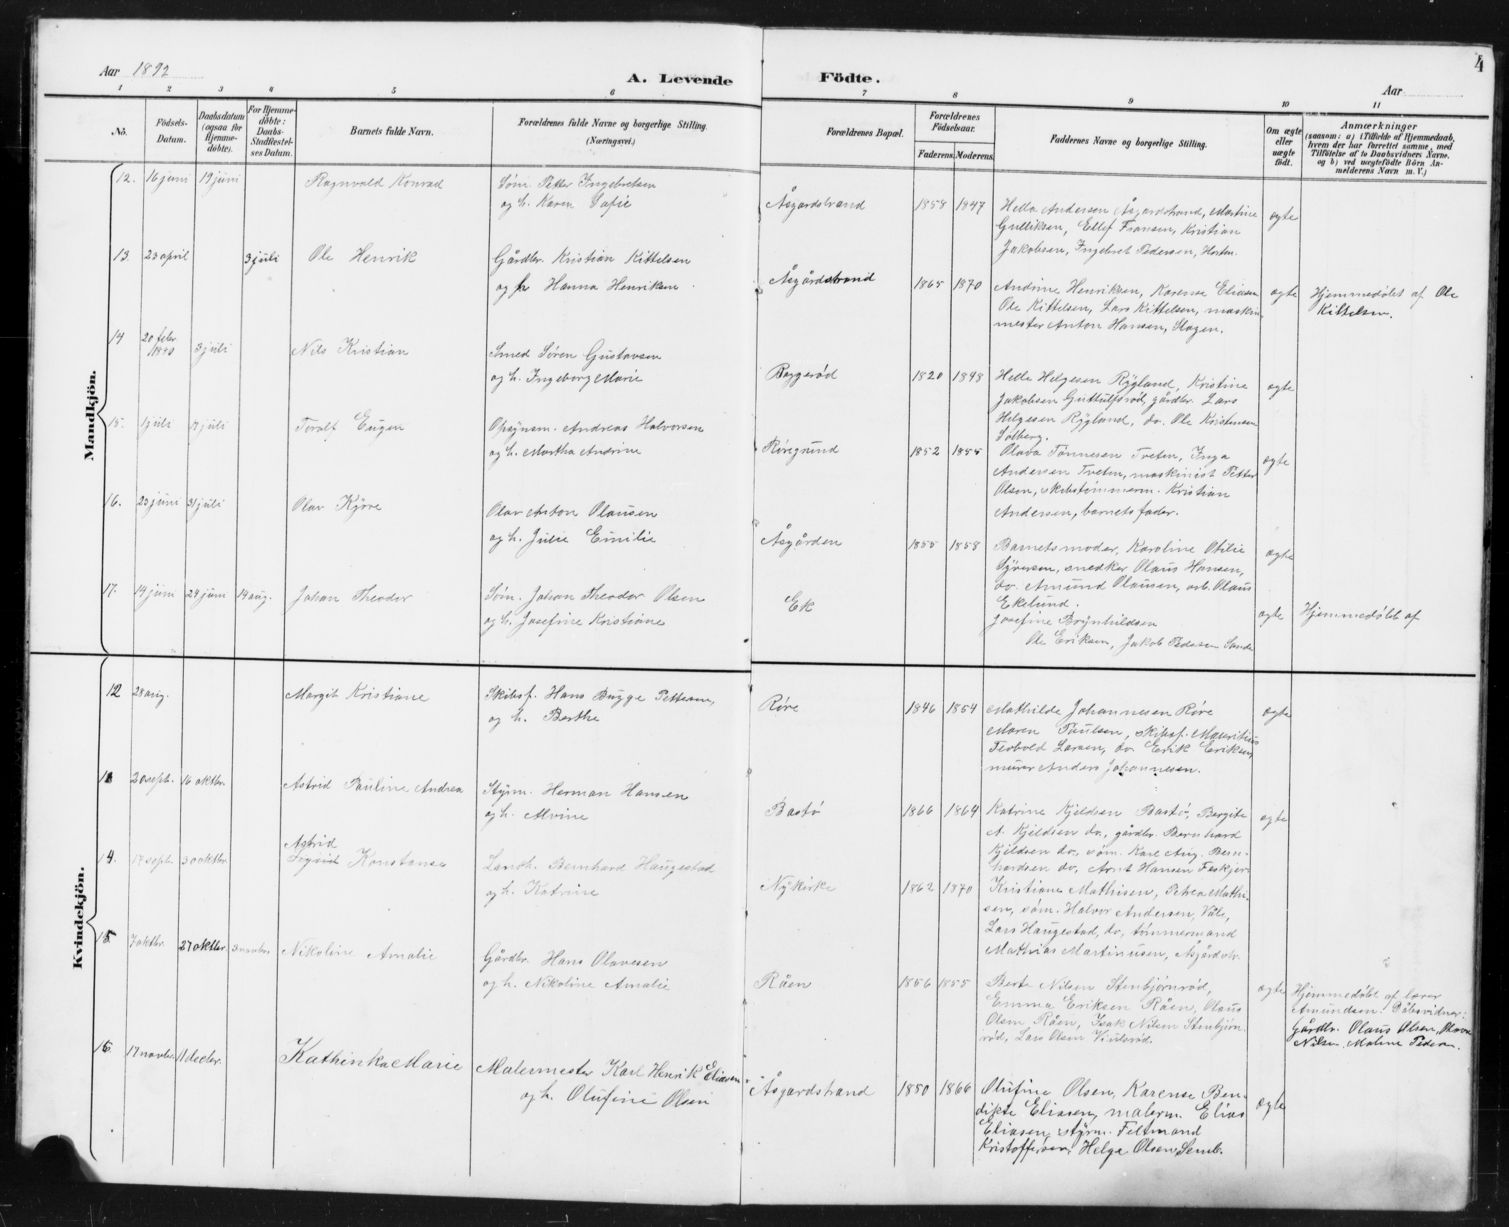 4
Aar 1892
A. Levende Fødte.
Aar
1 2 3 4 5 6 7 8 9 10 11
No.
Fødsels-Datum.
Daabsdatum (ogsaa for Hjemme-døbte).
For Hjemme-døbte: Daabs-Stadfæstel-ses Datum.
Barnets fulde Navn.
Forældrenes fulde Navne og borgerlige Stilling. (Næringsvei.)
Forældrenes Bopæl.
Forældrenes Fødselsaar.
Faderens. Moderens.
Faddernes Navne og borgerlige Stilling.
Om ægte eller uægte født.
Anmærkninger
(saasom: a) i Tilfælde af Hjemmedaab, hvem der har forrettet samme, med Tilføielse af to Daabsvidners Navne, og b) ved uægtefødte Børn An-melderens Navn m. V.)
Mandkjön.
12. 16 juni 19 juni Ragnvald Konrad Søm. Petter Ingebretsen
og h. Karen Sofie Åsgardstrand 1858 1847 Helle Andersen Åsgardstrand, Martine ægte
Gulliksen, Ellef Fransen, Kristian
Jakobsen, Ingebret Pedersen, Horten.
13. 23 april 3 juli Ole Henrik Gårdbr. Kristian Kittelsen
og h. Hanna Henriksen Åsgårdstrand 1865 1870 Andrine Henriksen, Karense Eliasen ægte Hjemmedøbt af Ole
Ole Kittelsen, Lars Kittelsen, maskin Kittelsen.
mester Anton Hansen, Slagen.
14 20 febr 3 juli Nils Kristian Smed Søren Gustavsen
og h. Ingeborg Marie Borgerød 1820 1848 Helle Helgesen Rygland, Kristine ægte
Jakobsen Guttulfsrød, gårdbr. Lars
Helgesen Rygland, do. Ole Kristensen
Solberg.
15. 1 juli 17 juli Toralf Eugen Opsynsm. Andreas Halvorsen
og h. Martha Andrine Røregrund 1852 1855 Olava Tønnesen Tveten, Inga ægte
Andersen Tveten, maskinist Petter
Olsen, skibstømmerm. Kristian
Andersen, barnets fader.
16. 23 juni 31 juli Olav Kjøve Olav Anton Olausen
og h. Julie Emilie Åsgården 1855 1858 Barnets moder, Karoline Otilie ægte
Syversen, snedker Olaus Hansen,
do. Amund Olausen, arb. Olaus
Ekelund.
17. 14 juni 24 juni 14 aug. Johan Theodor Søm. Johan Theodor Olsen
og h. Josefine Kristiane Ek Josefine Brynhildsen ægte Hjemmedøbt af
Ole Eriksen, Jakob Pedersen Sande
Kvindekjön.
12 28 aug. Margit Kristiane Skibsf. Hans Bugge Pettersen,
og h. Berthe Røre 1846 1854 Mathilde Johannesen Røre ægte
Maren Paulsen, skibsf. Mauritius
Teobold Larsen, do Erik Eriksen,
murer Anders Johannesen.
20 septb. 16 oktbr. Astrid Pauline Andrea Styrm. Herman Hansen
og h. Alvine Bastø 1866 1864 Katrine Kjeldsen Bastø, Bergite ægte
A. Kjeldsen do, gårdbr. Bernhard
Kjeldsen do, søm. Karl Aug. Bern-
hardsen do, Arnt Hansen
14. 17 septb. 30 oktbr. Astrid
Konstanse Landh. Bernhard Haugestad
og h. Katrine Nykirke 1862 1870 Kristiane Mathisen, Petrea Mathi-
sen, søm. Halvor Andersen, Våle,
Lars Haugestad, do, tømmermand
Mathias Martinusen, Åsgårdstr.
15 7 oktbr. 27 oktbr. 3 novbr. Nikoline Amalie Gårdbr. Hans Olavesen
og h. Nikoline Amalie Råen 1856 1855 Berte Nilsen Stenbjørnrød, ægte Hjemmedøbt af lærer
Emma Eriksen Råen, Olaus Amundsen. Døbsvidner:
Olsen Råen, Isak Nilsen Stenbjørn Gårdbr. Olaus Olsen,
rød, Lars Olsen Nilsen, Maline Pedersen.
16. 17 novbr. 11 decbr. Kathinka Marie Malermester Karl Henrik Eliasen
og h. Olufine Olsen Åsgardstrand 1850 1866 Olufine Olsen, Karense Ben- ægte
dikte Eliasen, malerm. Elias
Eliasen, styrm. Feltmand
Kristoffersen, Helga Olsen, Semb.